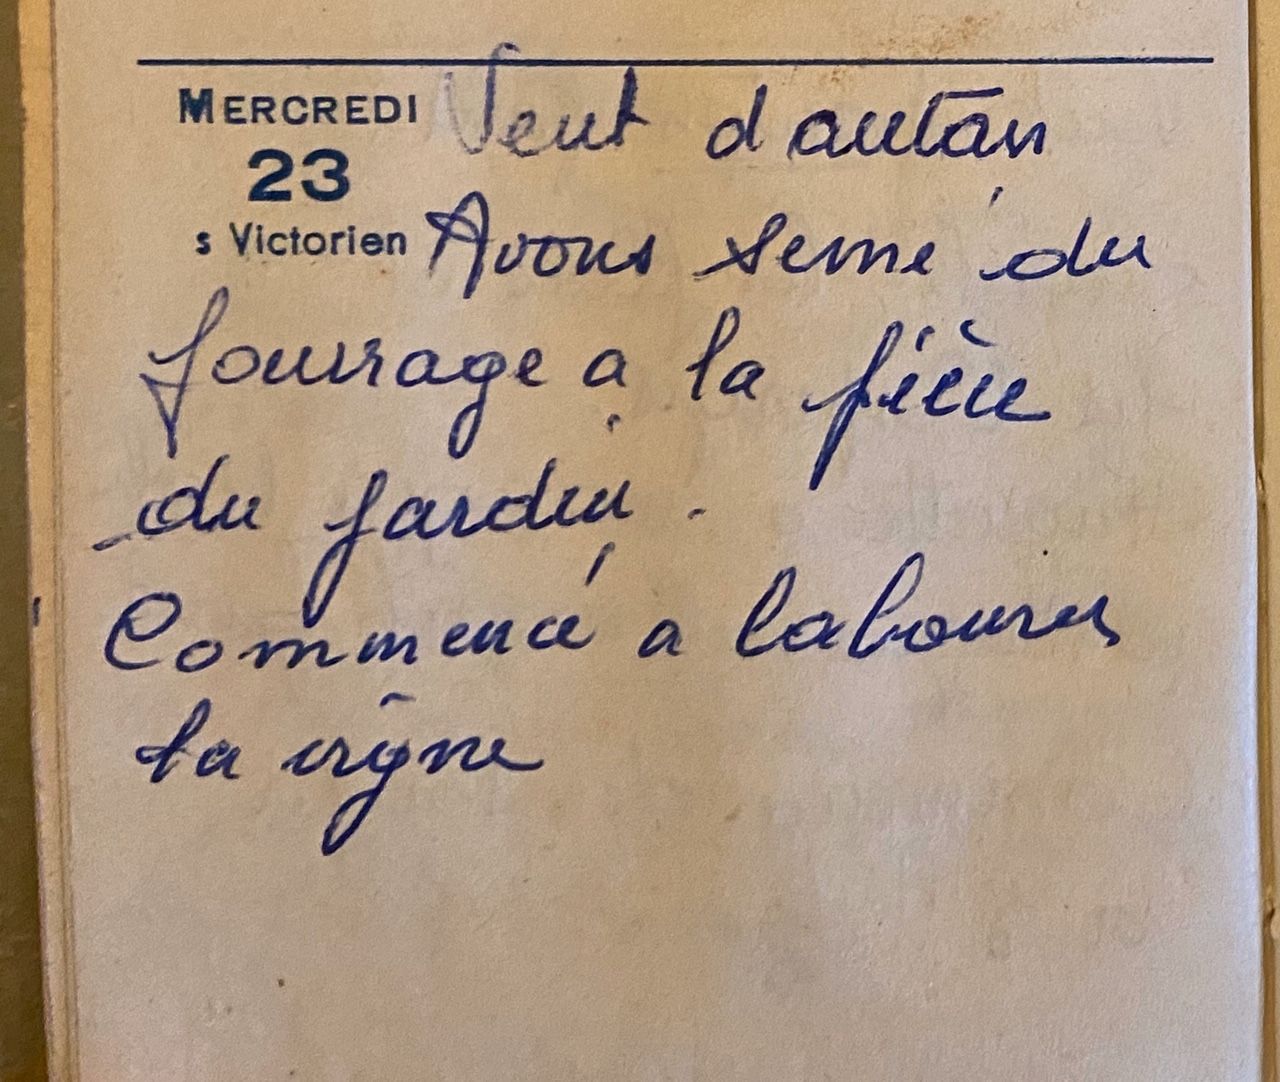 MERCREDI Vent d'autan
23
s Victorien Avons semé du
fourrage a la pièce
du jardin.
Commencé a labourer
la vigne